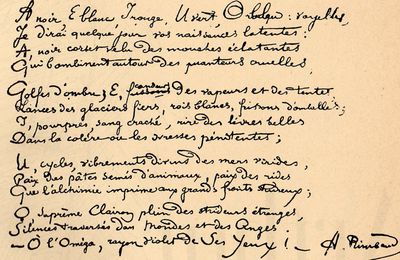 A noir, E blanc, I rouge, U vert, O bleu : voyelles,
Je dirai quelque jour vos naissances latentes :
A, noir corset velu des mouches éclatantes
Qui bombinent autour des puanteurs cruelles,
Golfes d'ombre ; E, candeurs des vapeurs et des tentes
Lances des glaciers fiers, rois blancs, frissons d'ombelles ;
I, pourpres, sang craché, rire des lèvres belles
Dans la colère ou les ivresses pénitentes ;
U, cycles, vibrements divins des mers virides,
Paix des pâtis semés d'animaux, paix des rides
Que l'alchimie imprime aux grands fronts studieux ;
O, Suprême Clairon plein des strideurs étranges,
Silences traversés des Mondes et des Anges :
— Ô l'Oméga, rayon violet de Ses Yeux ! — A. Rimbaud